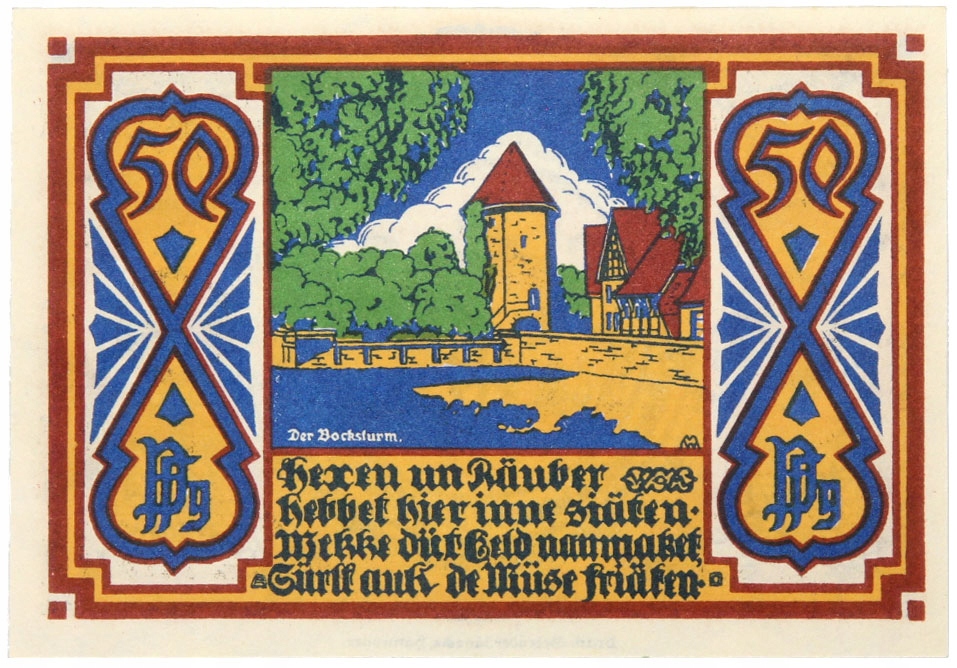 50
50
Der Bocksturm.
Pfg
Pfg
Hexen un Räuber
hebbet hier inne siäten·
Wekke düt Geld naumaket,
Süllt auk de Müse friäten·